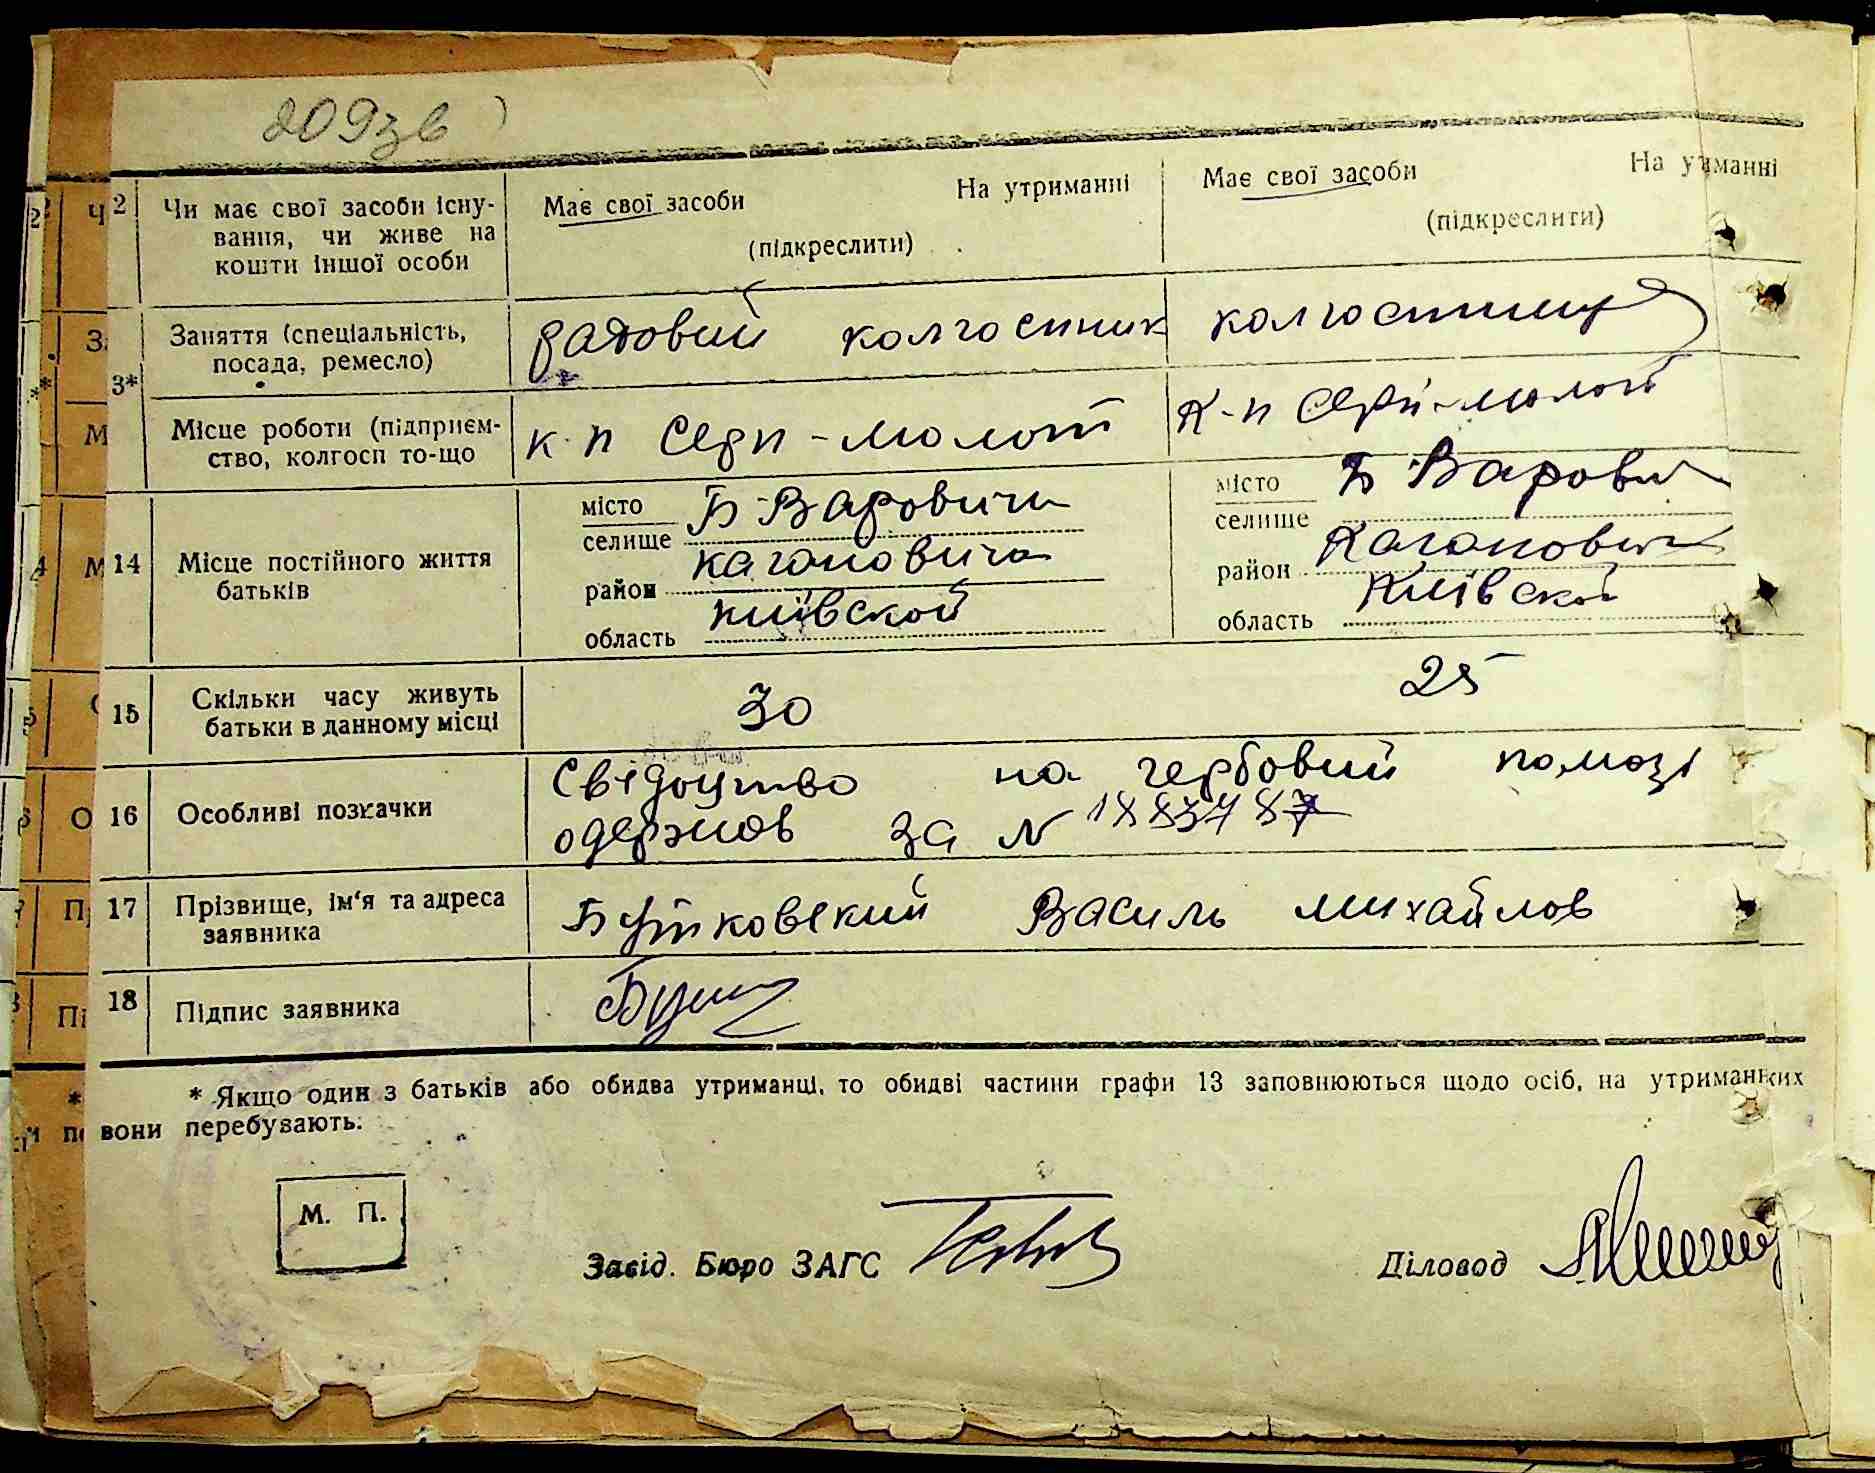 209зв
2 Чи має свої засоби існу-
вання, чи живе на
кошти іншої особи
Має свої засоби На утриманні
(підкреслити)
Має свої засоби На утиманні
(підкреслити)
3*
Заняття (спеціальність,
посада, ремесло)
рядовий колгоспник
колгоспниця
Місце роботи (підприєм-
ство, колгосп то-що
к-п Серп-молот
К-п Серп-молот
14 Місце постійного життя
батьків
місто
селище
Б-Варовичи
район
кагановича
область
київской
місто
селище
Б-Варович
район
Каганович
область
Київской
15 Скільки часу живуть
батьки в данному місці
30
25
16 Особливі позначки
Свідоцтво на гербовий
одержов за N
17 Прізвище, ім'я та адреса
заявника
Бутковский Василь михайлов
18 Підпис заявника
* Якщо один з батьків або обидва утриманці, то обидві частини графи 13 заповнюються щодо осіб, на утриманні яких
вони перебувають.
М. П.
Завід. Бюро ЗАГС
Діловод